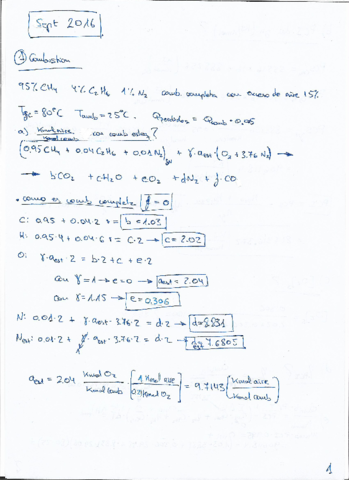 Sept 2016
① Combustion
95% CH4 4% C2H6 1% N2 comb. completa con exceso de aire 15%
Tgc = 80°C Tamb = 25°C Qperdidas = Qcomb · 0,05
a) Kmol aire / Kmol comb con comb esteq?
(0.95 CH4 + 0.04 C2H6 + 0.01 N2) + γ · aest · (O2 + 3.76 N2) →
→ bCO2 + cH2O + eO2 + dN2 + f · CO
• como es comb completa f = 0
C: 0.95 + 0.04 · 2 = b = 1.03
H: 0.95 · 4 + 0.04 · 6 = C · 2 → c = 2.02
O: γ · aest · 2 = b · 2 + c + e · 2
con γ = 1 → e = 0 → aest = 2.04
con γ = 1.15 → e = 0.306
N: 0.01 · 2 + γ · aest · 3.76 · 2 = d · 2 → d = 8.831
Nest: 0.01 · 2 + γ · aest · 3.76 · 2 = d · 2 → d = 7.6805
1
aest = 2.04 Kmol O2 / Kmol comb [1 Kmol aire / 0.21 Kmol O2] = 9.7143 (Kmol aire / Kmol comb)
1